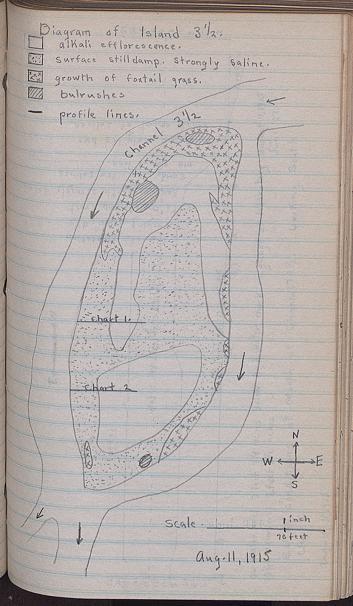 Diagram of Island 3 1/2.
alkali efflorescence.
surface still damp. strongly saline.
growth of foxtail grass.
bulrushes
profile lines.
Channel 3 1/2
chart 1.
chart 2
N
W E
S
Scale 1 inch
70 feet
Aug. 11, 1915